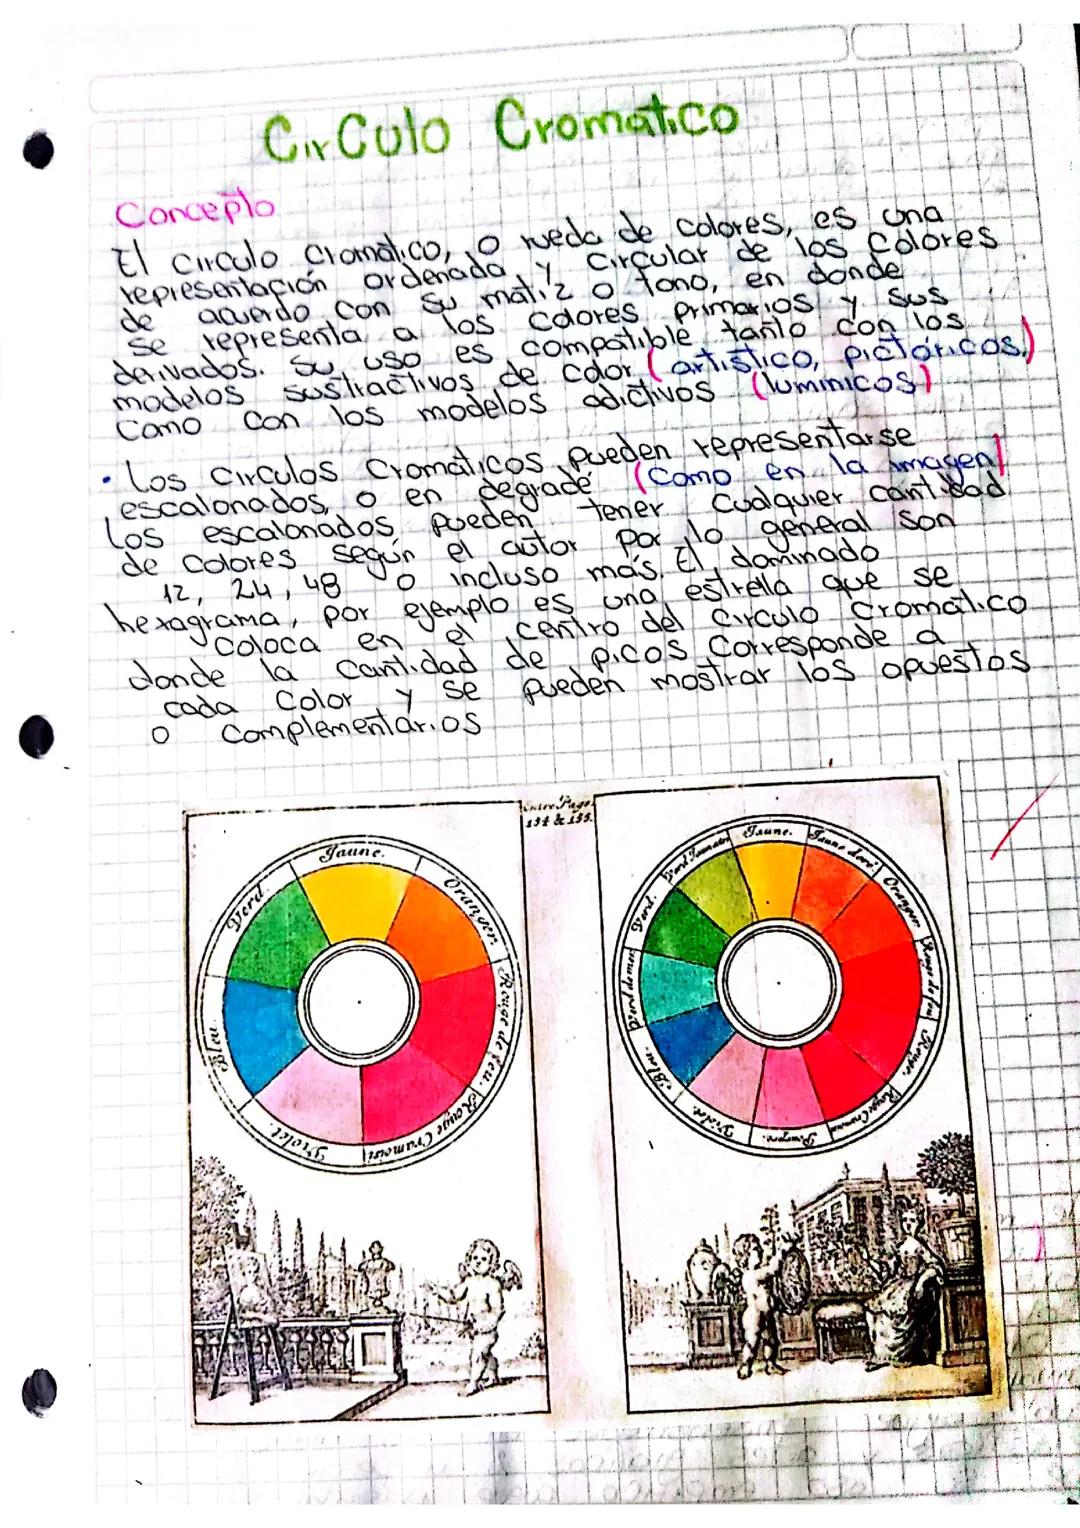 CirCulo Cromático
Concepto
El circulo cromático, o rueda de colores, es una
representación ordenada y circular de los colores
de acuerdo con su matiz o tono, en donde
se representa a los colores primarios y sus
derivados. Su uso es compatible tanto con los
modelos sustractivos de color (artistico, pictóricos,)
Como con los modelos adictivos (luminicos)
• Los Circulos Cromáticos pueden representarse
escalonados, o en degradé (Como en la imagen)
Los escalonados pueden tener cualquier cantidad
de colores según el autor por lo general son
12, 24, 48 o incluso más. El dominado
hexagrama, por ejemplo es una estrella que se
coloca en el centro del circulo cromático
donde la cantidad de picos corresponde a
cada color y se pueden mostrar los opuestos
o complementarios
Entre Page
154 & 155.
Jaune.
Verd.
Oranger.
Rouge de feu.
Bleu.
Violet.
Rouge Cramoisi
Jaune.
Jaune doré
Oranger
Rouge de feu
Rouge.
Rouge Cramoisi
Pourpre.
Violet.
Bleu
Verd de mer
Verd.